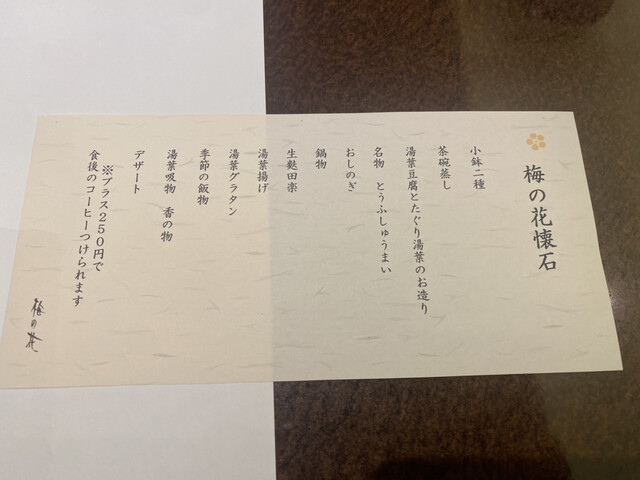 梅の花懐石
小鉢二種
茶碗蒸し
湯葉豆腐とたぐり湯葉のお造り
名物 とうふしゅうまい
おしのぎ
鍋物
生麩田楽
湯葉揚げ
湯葉グラタン
季節の飯物
湯葉吸物 香の物
デザート
※プラス250円で
食後のコーヒーつけられます
梅の花